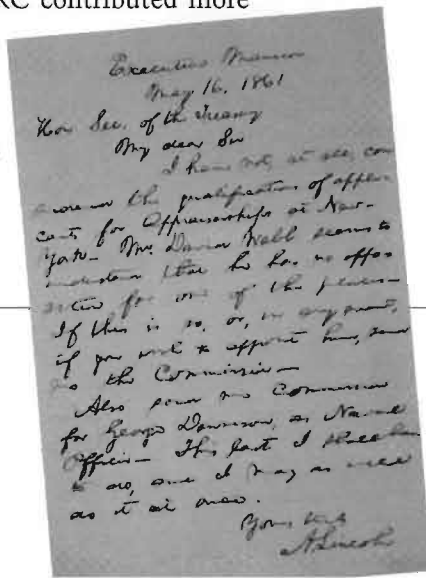 RC contributed more
Executive Mansion
May 16, 1861
Hon Sec. of the Treasury
My dear Sir
I have not, at all, con
the qualification of appli-
cants for Appraiserships at New-
York. Mr. Webb seems to
understand that he has no oppo
sition for one of the places-
If this is so, or, in any event,
if you wish to appoint him, send
me the Commission-
Also send me Commission
for George Dennison, as Naval
Officer- This last I shall have
to do, and I may as well
do it at once.
Yours truly
A. Lincoln